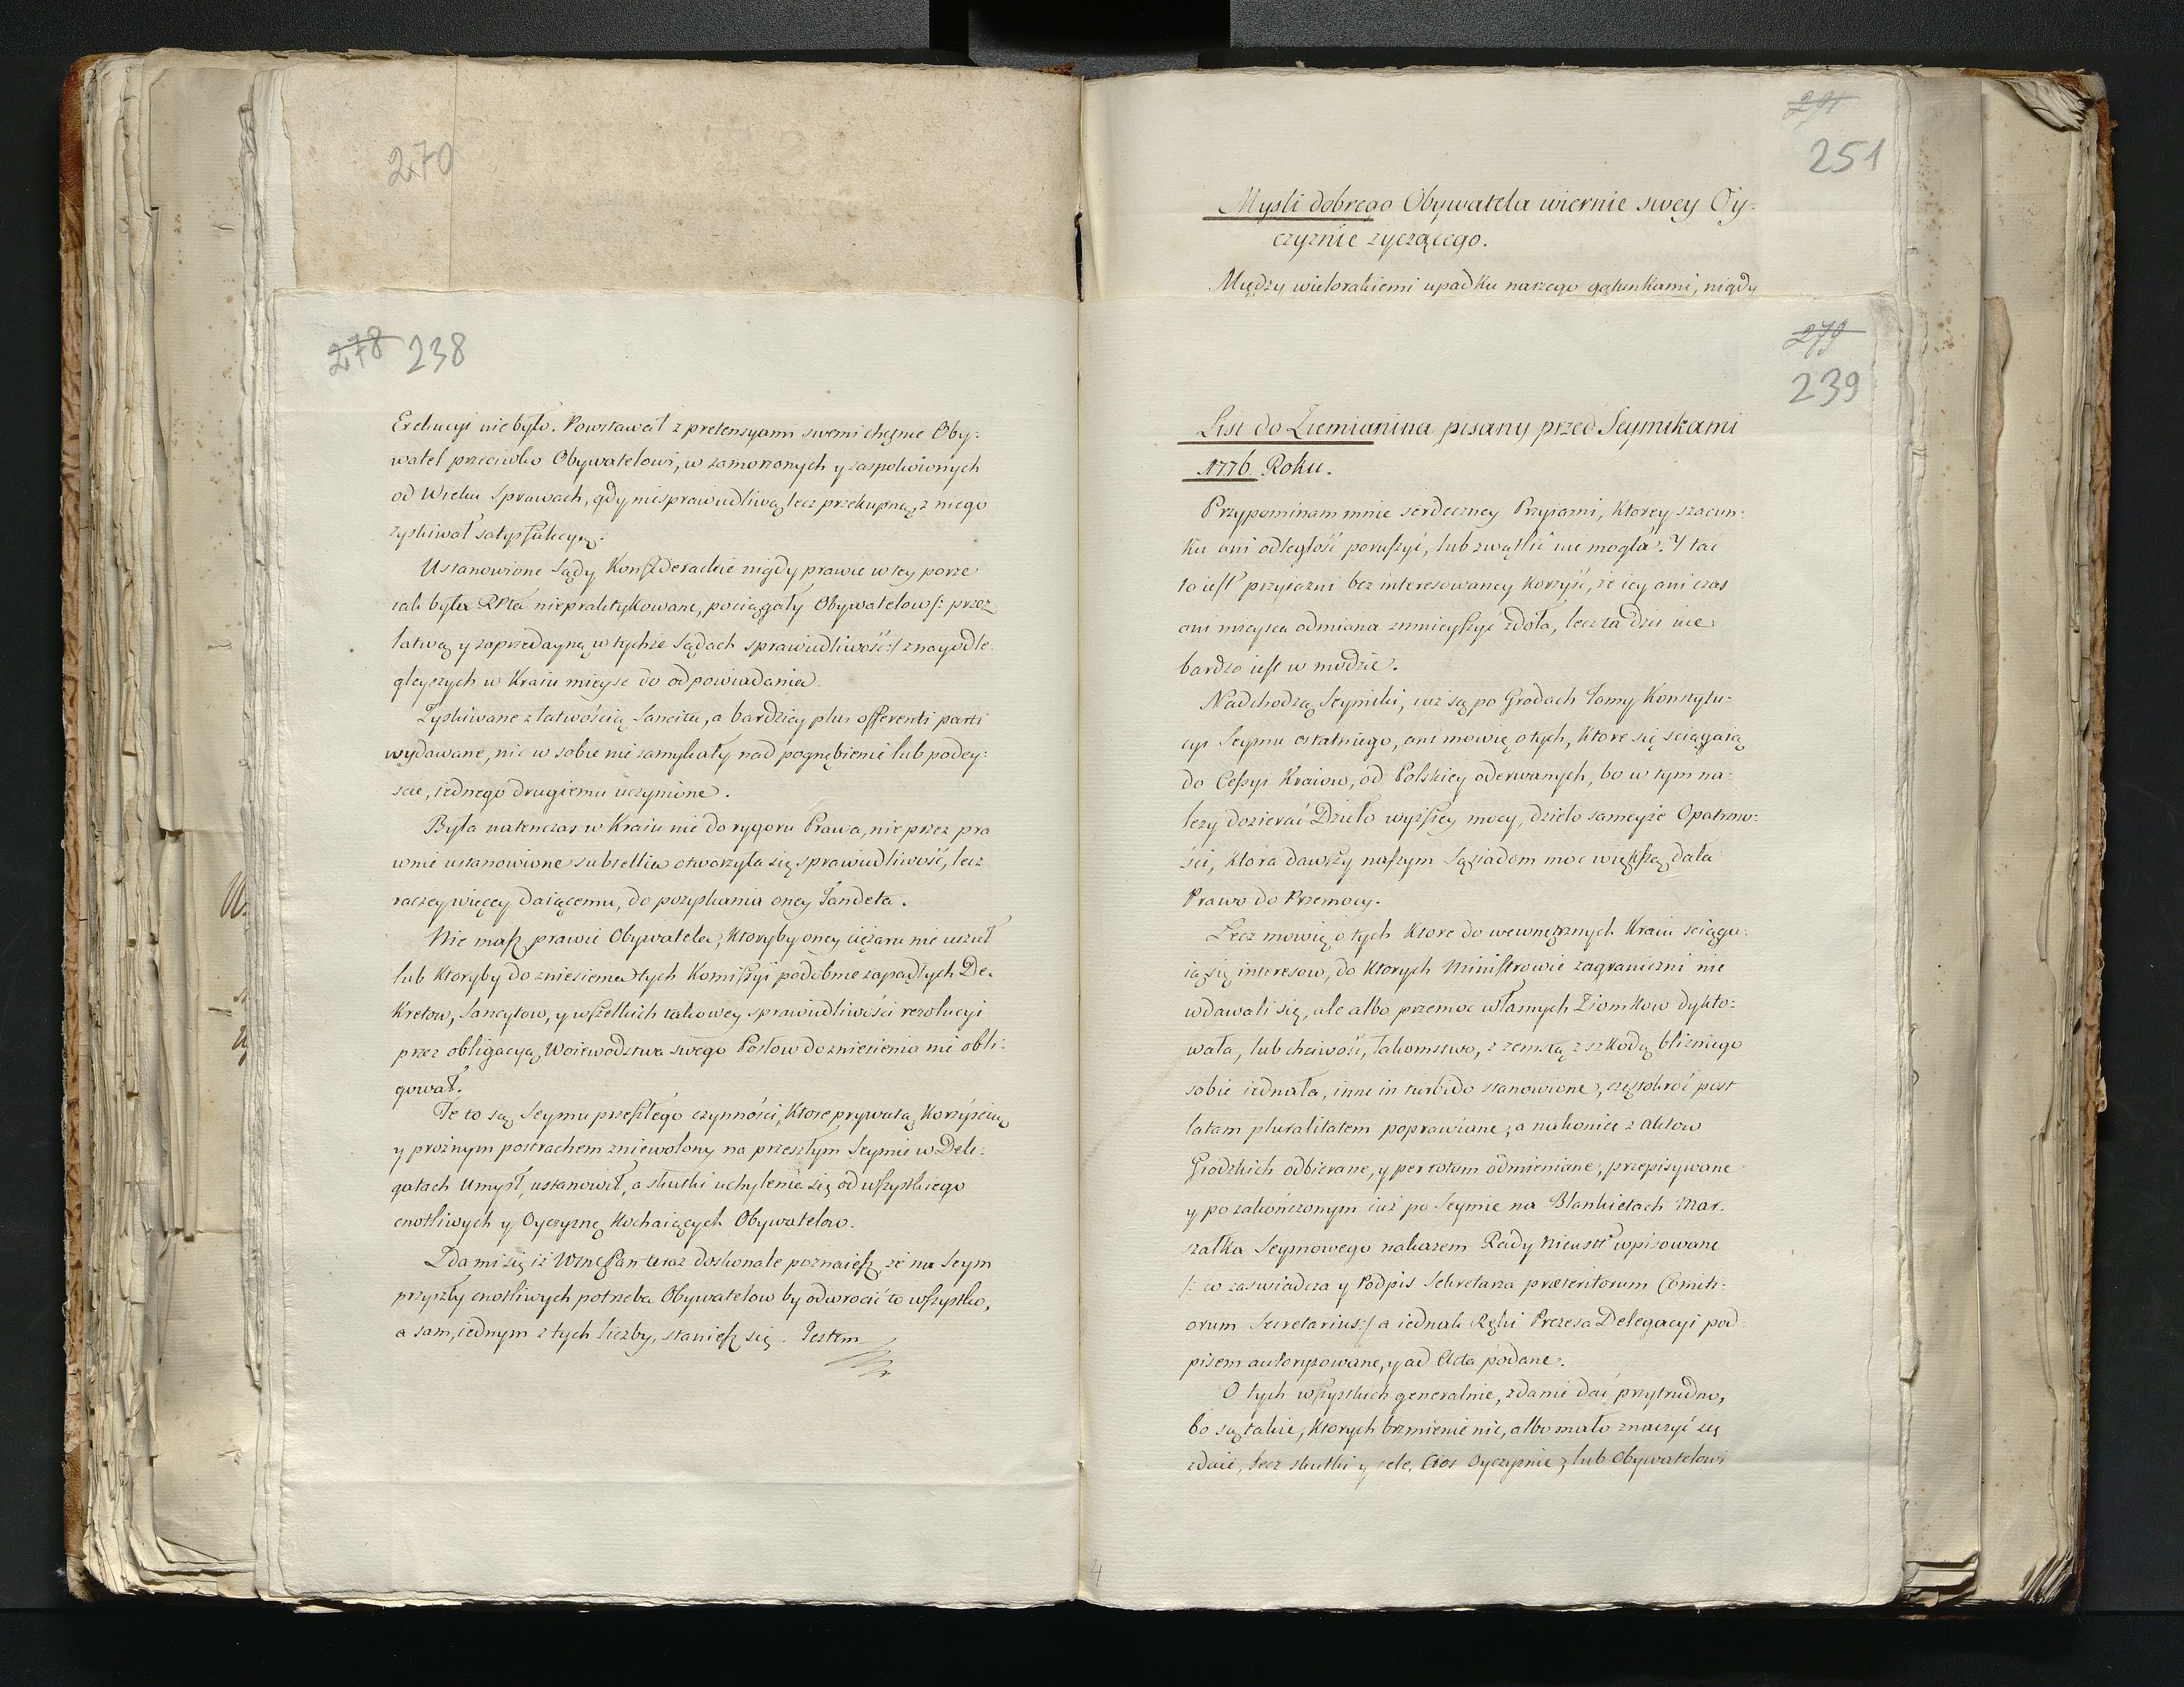 270
278 238
Exekucyi nie było. Powstawał z pretensyami swemi chętnie Oby:
watel przeciwko Obywatelowi, w zamorzonych y zaspokoionych
od Wieku Sprawach, gdy niesprawiedliwą lecz przekupną z niego
zyskiwał satysfakcyą.
Ustanowione Sądy Konfederackie nigdy prawie w tey porze
iak była RPta niepraktykowane, pociągały Obywatelow /: przez
łatwą y zaprzedayną w tychże Sądach sprawiedliwość :/ z nayodle
gleyszych w Kraiu mieysc do odpowiadania.
Zyskiwane z łatwością Sancita, a bardziey plus offerenti parti
wydawane, nic w sobie nie zamykały nad pognębienie lub podey:
scie, iednego drugiemu uczynione.
Była natenczas w Kraiu nie do rygoru Prawa, nie przez pra
wnie ustanowione subsellia otworzyła się sprawiedliwość, lecz
raczey więcey daiącemu, do pozyskania oney Tandeta.
Nie masz prawie Obywatela, ktoryby oney ciężaru nie uczuł
lub ktoryby do zniesienia tych Komissyi podobnie zapadłych De:
kretow, Sancytow, y wszelkich takowey sprawiedliwości rezolucyi
przez obligacyą Woiewodztwa swego Posłow do zniesienia nie obli:
gował.
Te to są Seymu przeszłego czynności, ktore prywatą, korzyścią
y prożnym postrachem zniewolony na przeszłym Seymie w Dele:
gatach Umysł, ustanowił, a skutki uchylenia się od wszystkiego
cnotliwych y Oyczyznę kochaiących Obywatelow.
Zda mi się iż WMc Pan teraz doskonale poznaiesz, że na Seym
przyszły cnotliwych potrzeba Obywatelow by odwrocić to wszystko,
a sam, iednym z tych liczby, staniesz się. Jestem
291
251
Mysli dobrego Obywatela wiernie swey Oy:
czyznie zyczącego.
Między wielorakiemi upadku naszego gatunkami, nigdy
279
239
List do Ziemianina pisany przed Seymikami
1776. Roku.
Przypominam mnie serdeczney Przyiazni, ktorey szacun:
ku ani odległość poruszyć, lub zwątlić nie mogła. Y tać
to iest przyiazni bez interesowaney korzyść, że iey ani czas
ani mieysca odmiana zmnieyszyć zdoła, lecz ta dziś nie
bardzo iest w modzie.
Nadchodzą Seymiki, iuż są po Grodach Tomy Konstytu:
cyi Seymu ostatniego, ani mowię o tych, ktore się sciągaią
do Cessyi Kraiow, od Polskiey oderwanych, bo w tym na:
leży dozierać Dzieło wyższey mocy, dzieło sameyże Opatrzno:
ści, ktora dawszy naszym Sąsiadom moc większą dała
Prawo do Przemocy.
Lecz mowię o tych ktore do wewnętrznych Kraiu sciąga:
ią się interesow, do ktorych Ministrowie zagraniczni nie
wdawali się, ale albo przemoc własnych Ziomkow dykto:
wała, lub chciwość, łakomstwo, z zemstą z szkodą bliźniego
sobie iednała, inne in turbido stanowione, częstokroć post
latam pluralitatem poprawiane, a nakoniec z Aktow
Grodzkich odbierane, y per totum odmieniane, przepisywane
y po zakończonym iuż po Seymie na Blankietach Mar:
szałka Seymowego nakazem Rady Nieust wpisowane
/: co zaswiadcza y Podpis Sekretarza præteritorum Comiti:
orum Secretarius :/ a iednak Ręki Prezesa Delegacyi pod
pisem autoryzowane, y ad Acta podane.
O tych wszystkich generalnie, zdanie dać przytrudno,
bo są takie, ktorych brzmienie nic, albo mało znaczyć się
zdaie, lecz skutki y cele, Cios Oyczyznie, lub Obywatelowi
4